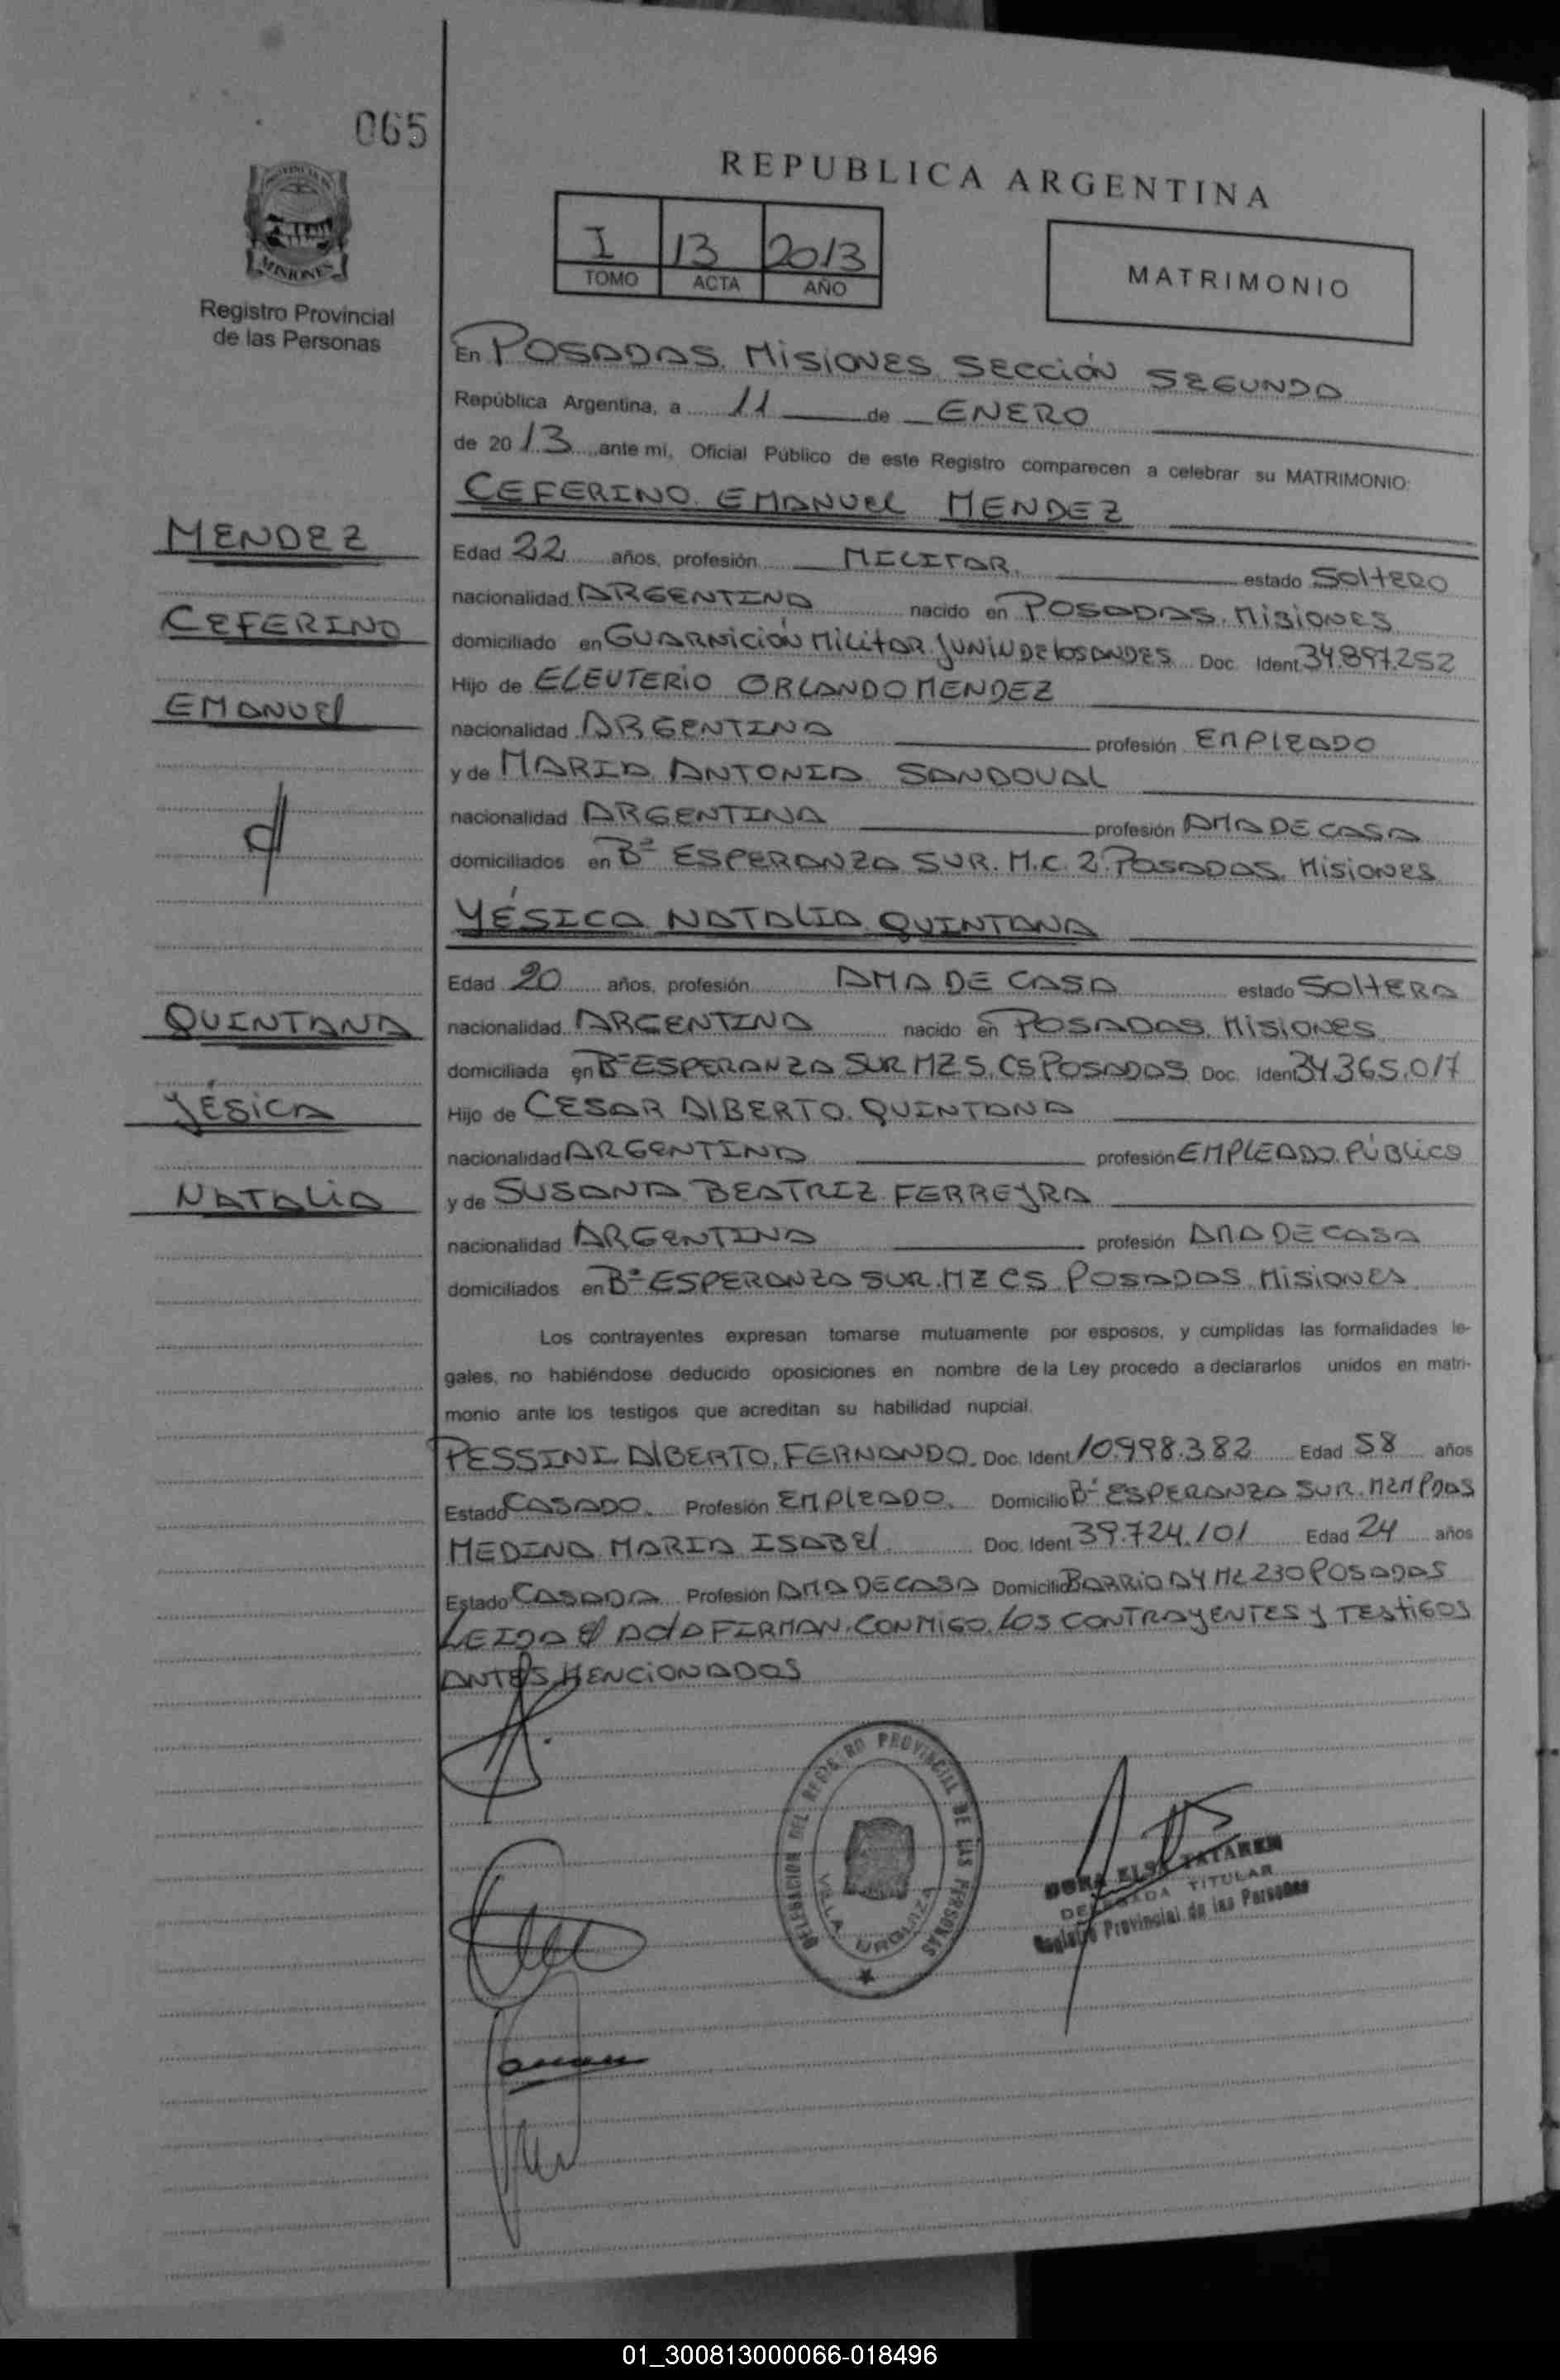 065
REPUBLICA ARGENTINA
I 13 2013
TOMO ACTA AÑO
MATRIMONIO
MISIONES
Registro Provincial
de las Personas
En POSADAS. MISIONES. SECCIÓN SEGUNDA
República Argentina, a 11 de ENERO
de 2013 ante mi, Oficial Público de este Registro comparecen a celebrar su MATRIMONIO:
CEFERINO EMANUEL MENDEZ
MENDEZ
CEFERINO
EMANUEL
Edad 22 años, profesión MILITAR. estado SOLTERO
nacionalidad ARGENTINA nacido en POSADAS. MISIONES
domiciliado en GUARNICIÓN MILITAR JUNIN DE LOS ANDES Doc. Ident 34.897.252
Hijo de ELEUTERIO ORLANDO MENDEZ
nacionalidad ARGENTINA profesión EMPLEADO
y de MARIA ANTONIA SANDOVAL
nacionalidad ARGENTINA profesión AMA DE CASA
domiciliados en Bº ESPERANZA SUR. M.C. 2. POSADAS. MISIONES
YÉSICA NATALIA QUINTANA
QUINTANA
YÉSICA
NATALIA
Edad 20 años, profesión AMA DE CASA estado SOLTERA
nacionalidad ARGENTINA nacido en POSADAS. MISIONES
domiciliada en Bº ESPERANZA SUR MZ 5. C5 POSADAS Doc. Iden 34.365.017
Hijo de CESAR ALBERTO QUINTANA
nacionalidad ARGENTINA profesión EMPLEADO PÚBLICO
y de SUSANA BEATRIZ FERREYRA
nacionalidad ARGENTINA profesión AMA DE CASA
domiciliados en Bº ESPERANZA SUR. MZ C5 POSADAS. MISIONES
Los contrayentes expresan tomarse mutuamente por esposos, y cumplidas las formalidades le-
gales, no habiéndose deducido oposiciones en nombre de la Ley procedo a declararlos unidos en matri-
monio ante los testigos que acreditan su habilidad nupcial.
PESSINI ALBERTO FERNANDO. Doc. Ident 10.998.382 Edad 58 años
Estado CASADO. Profesión EMPLEADO. Domicilio Bº ESPERANZA SUR. PDAS
MEDINA MARIA ISABEL Doc. Ident 39.724.101 Edad 24 años
Estado CASADA Profesión AMA DE CASA Domicilio BARRIO A4 230 POSADAS
LEIDA el ACTA FIRMAN CONMIGO. LOS CONTRAYENTES y TESTIGOS
ANTES MENCIONADOS
DELEGACION DEL REGISTRO PROVINCIAL DE LAS PERSONAS
VILLA URQUIZA
DORA ELSA TATAREN
DELEGADA TITULAR
Registro Provincial de las Personas
01_300813000066-018496